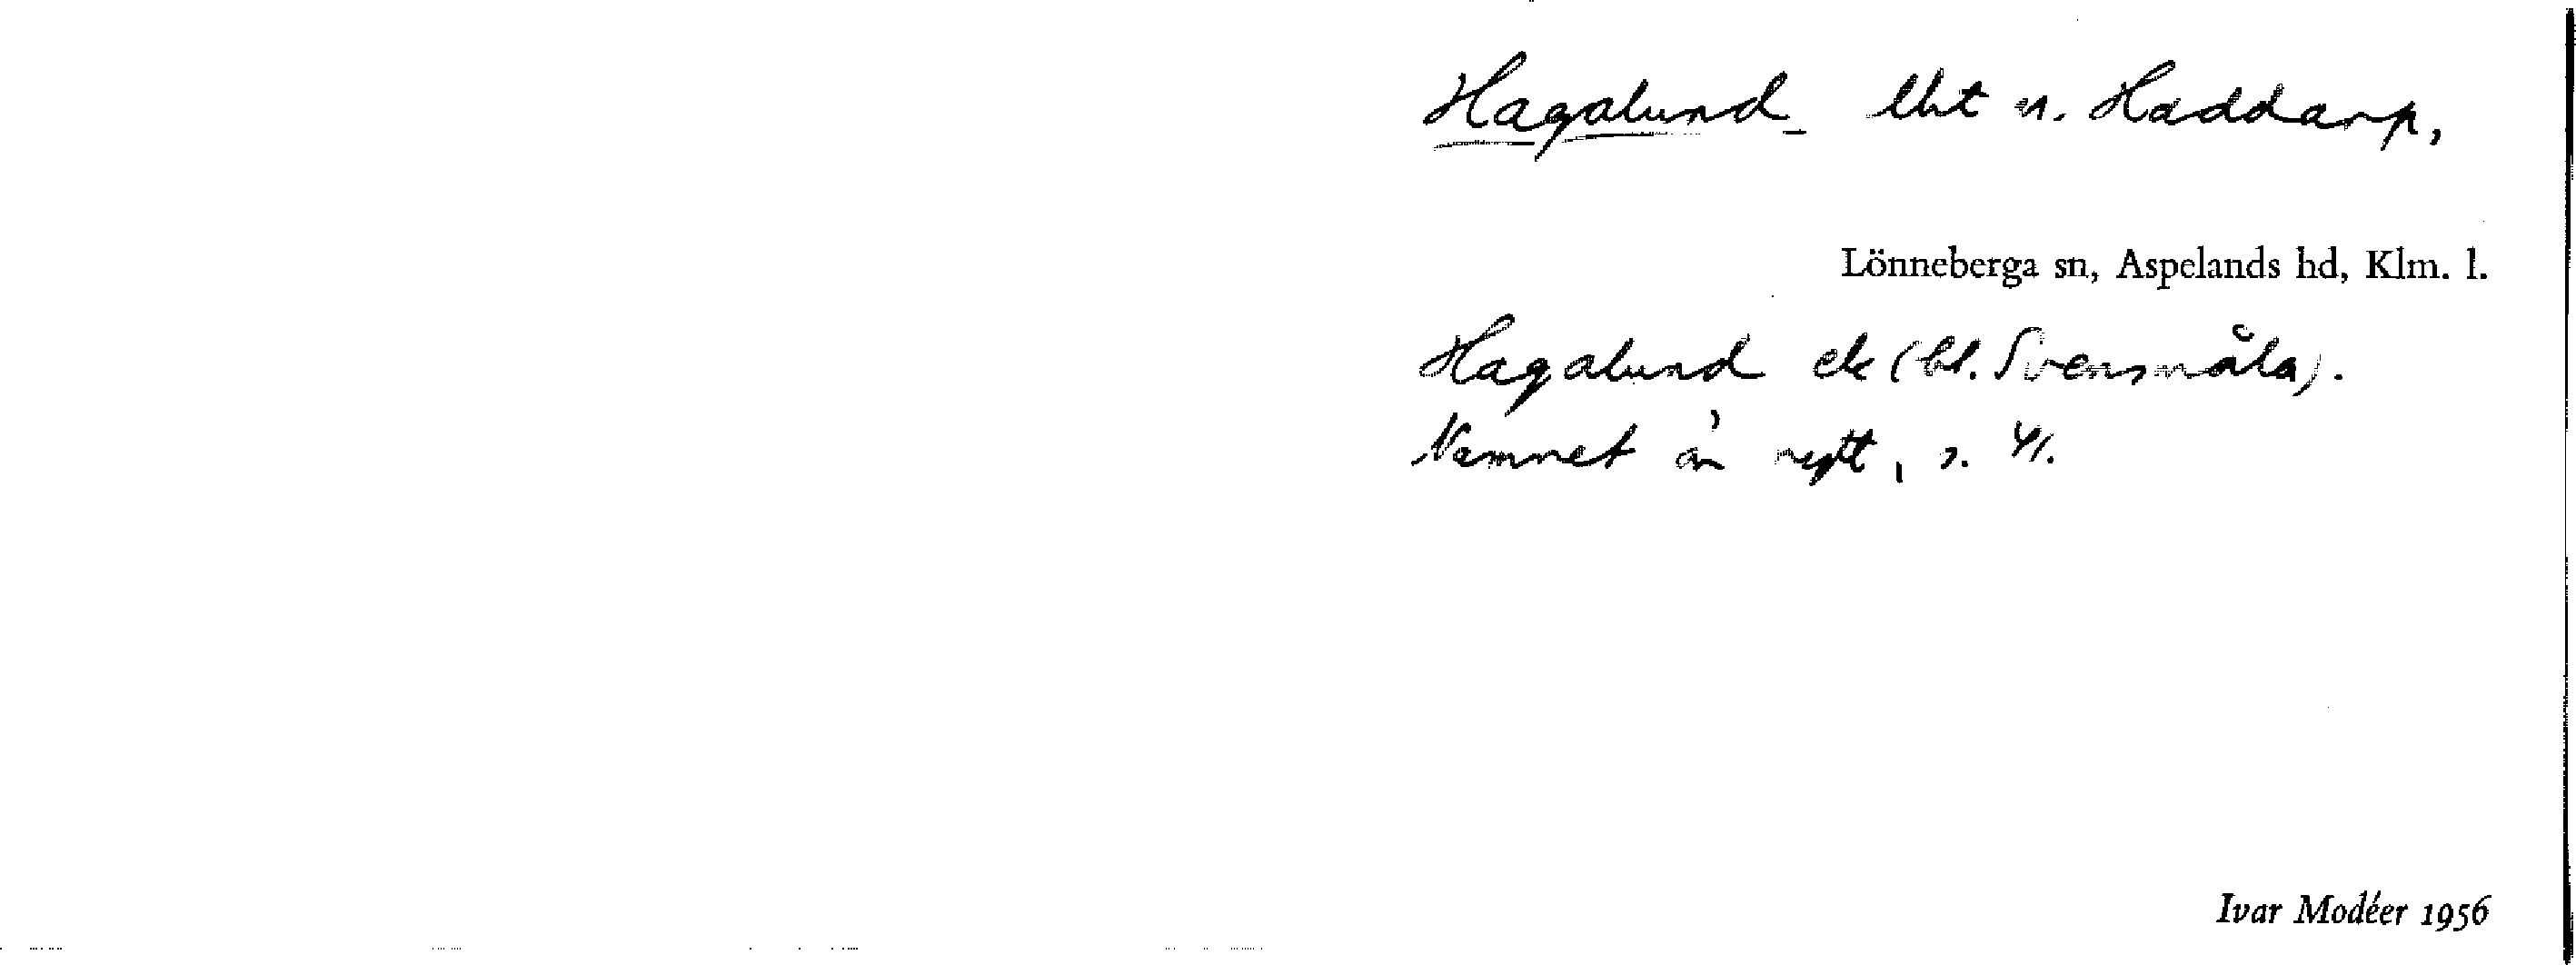 Hagalund lht u. Haddarp,
Lönneberga sn, Aspelands hd, Klm. l.
Hagalund ek (bl. Svensmåla).
Namnet är nytt, s. 41.
Ivar Modéer 1956